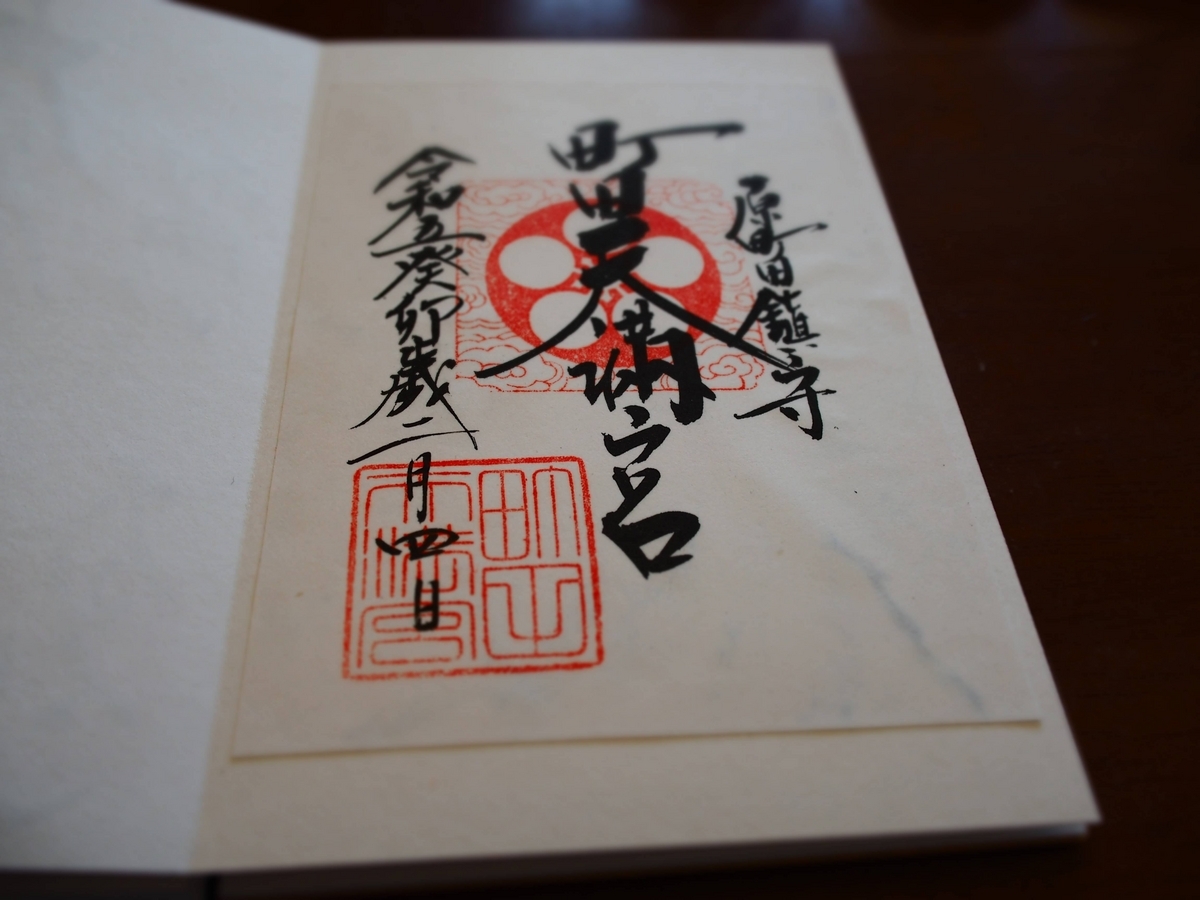 原町田鎮守
町田天満宮
令和五癸卯歳二月四日
町田
天満宮